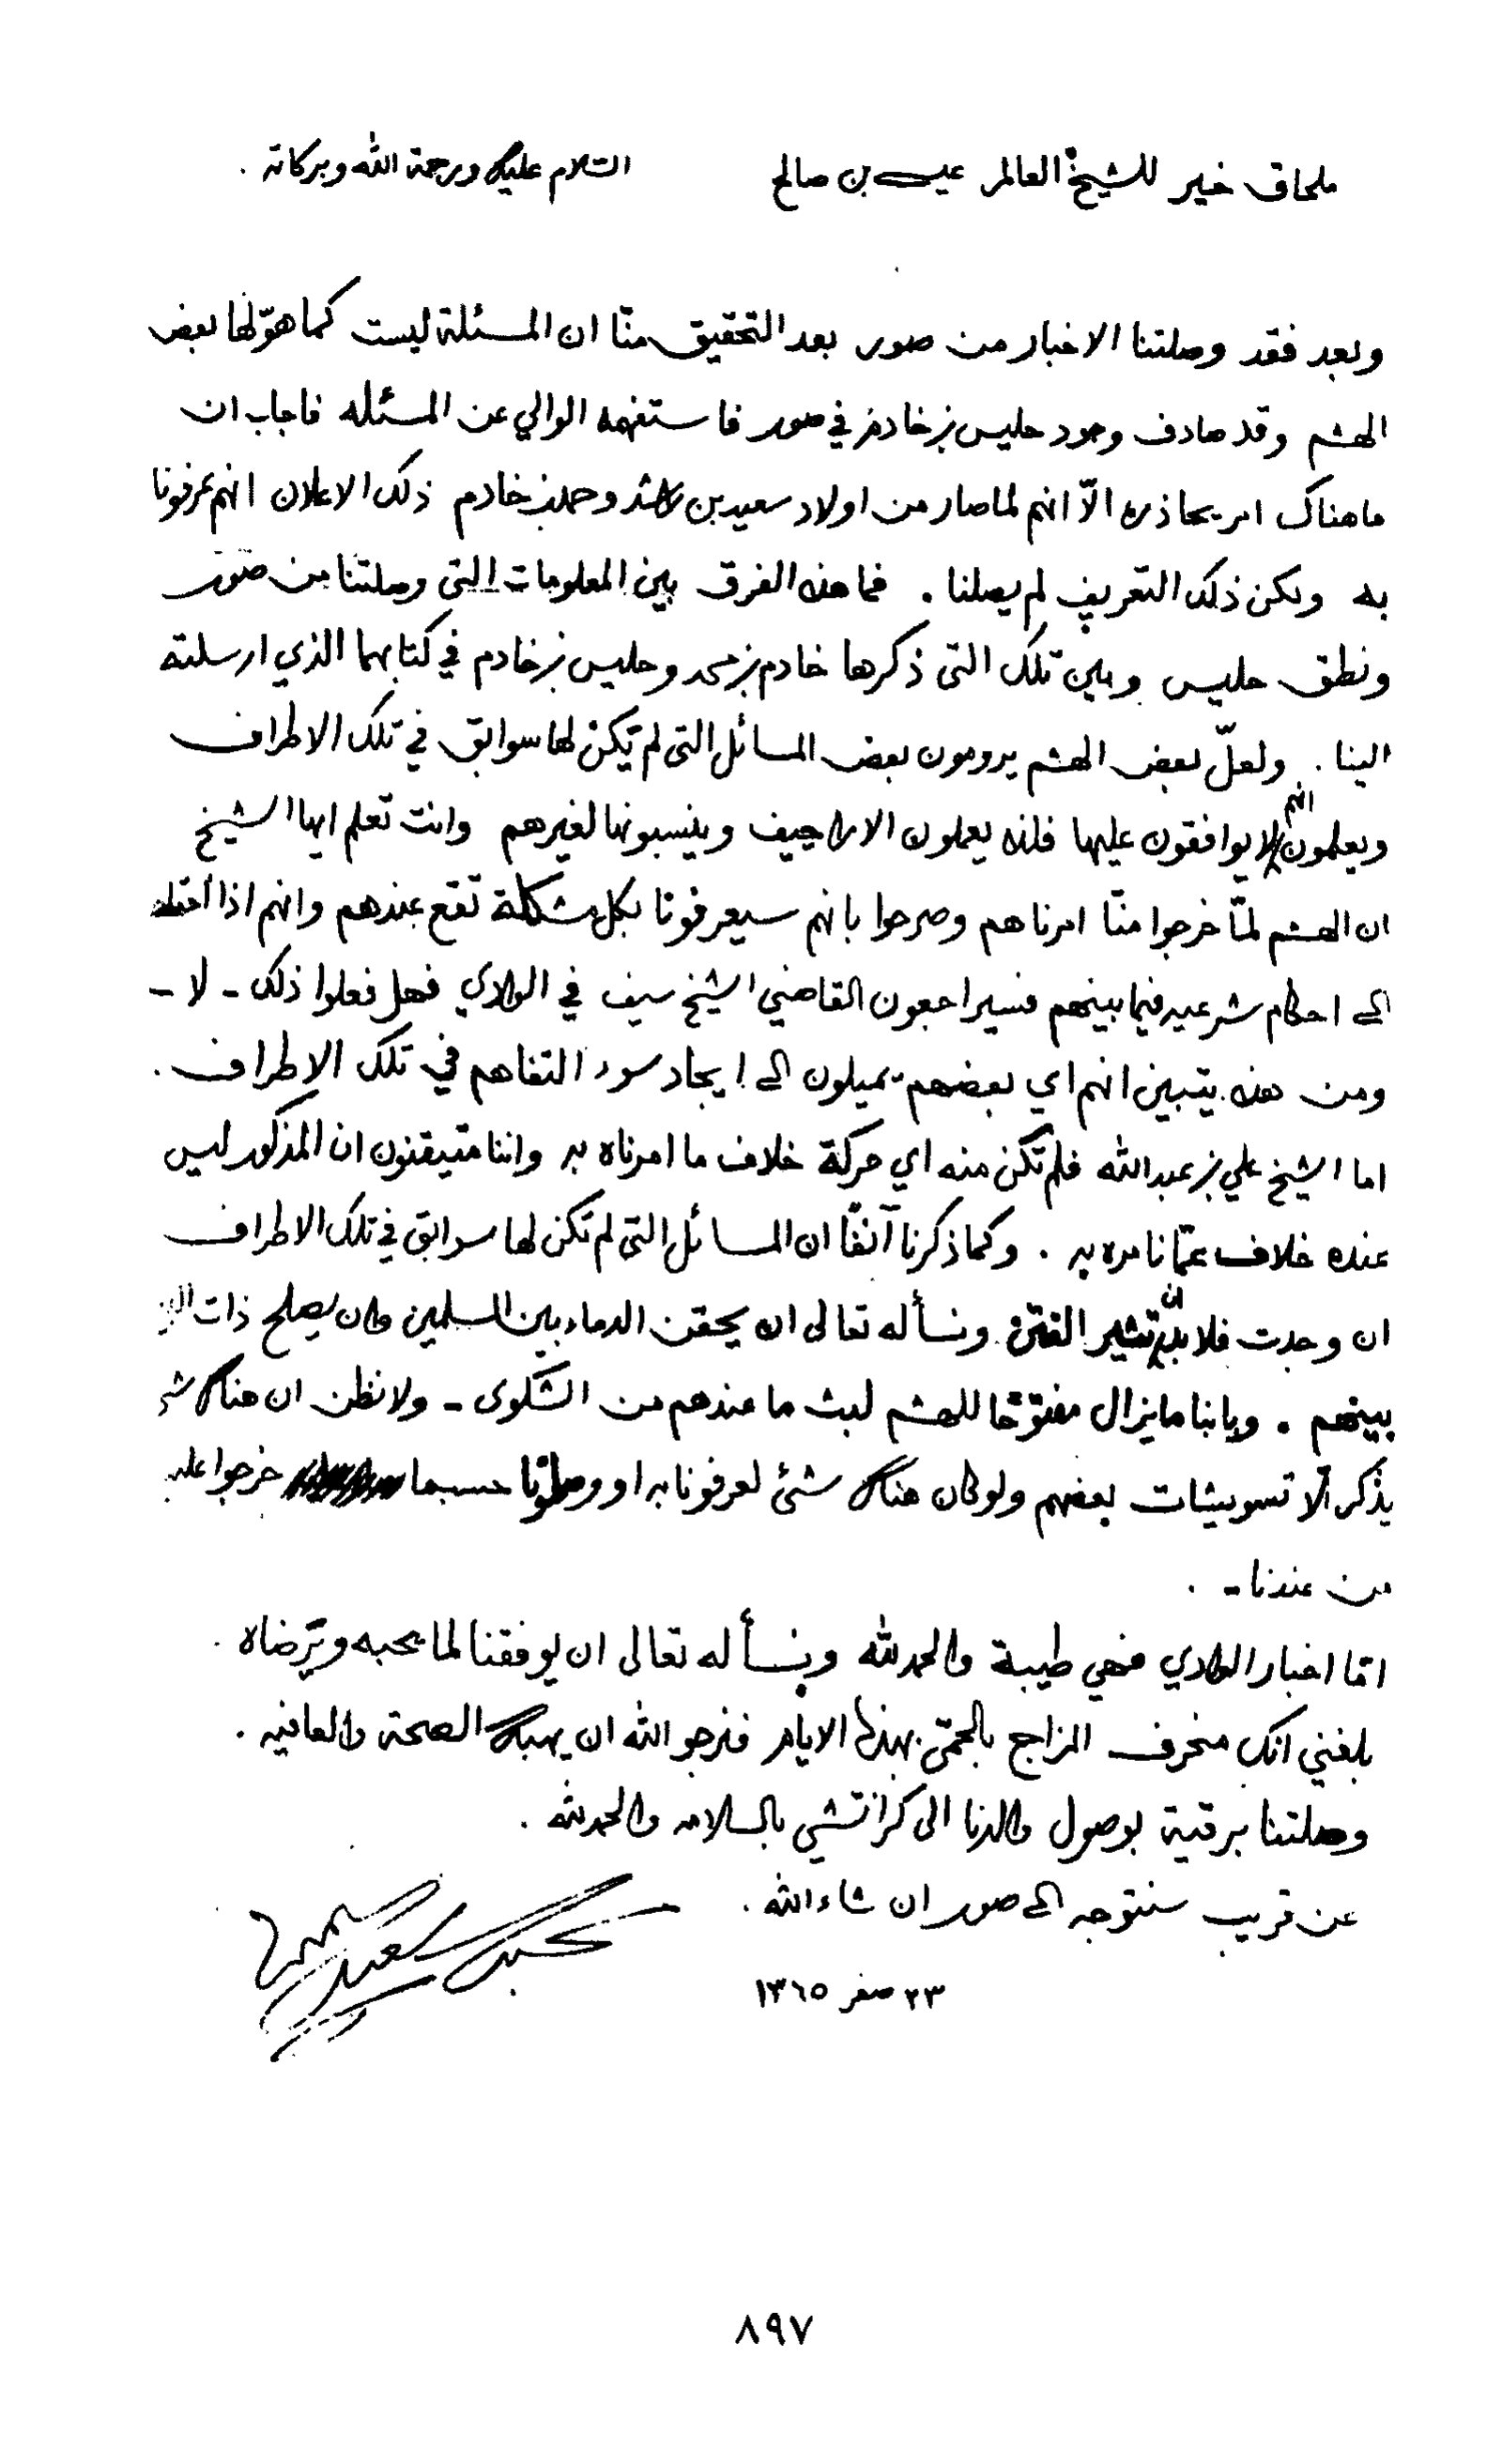 ملحاق خير للشيخ العالم عيسى بن صالح السلام عليك ورحمة الله وبركاته .
وبعد فقد وصلتنا الاخبار من صور بعد التحقيق منّا ان المسئلة ليست كما هوّلها بعض
الهشم وقد صادف وجود حليس بن خادم في صور فاستفهمه الوالي عن المسئله فاجاب ان
ما هناك امر يحاذره الاّ انهم لما صار من اولاد سعيد بن راشد وحمد بن خادم ذلك الاعلان انهم عرفونا
به ولكن ذلك التعريف لم يصلنا . فما هذه الفرق بين المعلومات التي وصلتنا من صور
ونطق حليس وبين تلك التي ذكرها خادم بن محمد وحليس بن خادم في كتابهما الذي ارسلته
الينا . ولعلّ بعض الهشم يرومون بعض المسائل التي لم تكن لها سوابق في تلك الاطراف
ويعلمون انهم لا يوافقون عليها فلذه يعملون الاراجيف وينسبونها لغيرهم وانت تعلم ايها الشيخ
ان الهشم لمّا خرجوا منّا امرناهم وصرحوا بانهم سيعرفونا بكل مشكلة تقع عندهم وانهم اذا
الى احكام شرعيه فيما بينهم فسيراجعون القاضي الشيخ سيف في الوادي فهل فعلوا ذلك - لا -
ومن هذه يتبين انهم اي بعضهم يميلون الى ايجاد سوء التفاهم في تلك الاطراف .
اما الشيخ علي بن عبدالله فلم تكن منه اي حركة خلاف ما امرناه به واننا متيقنون ان المذكور ليس
عنده خلاف عمّا نامره به . وكما ذكرنا آنفًا ان المسائل التي لم تكن لها سوابق في تلك الاطراف
ان وجدت فلا بد ان تثير الفتن ونسأله تعالى ان يحقن الدماء بين المسلمين وان يصلح ذات
بينهم . وبابنا ما يزال مفتوحًا للهشم لبث ما عندهم من الشكوى - ولا نظن ان هناك
يذكر الّا تسويشات بعضهم ولو كان هناك شئ لعرفونا به او وصلونا حسبما خرجوا عليه
من عندنا - .
امّا اخبار الوادي فهي طيبة والحمد لله ونسأله تعالى ان يوفقنا لما يحبه ويرضاه .
بلغني انك منحرف المزاج بالحمّى بهذه الايام فنرجو الله ان يهبك الصحة والعافيه .
وصلتنا برقية بوصول والدنا الى كراتشي بالسلامه والحمد لله .
عن قريب سنتوجه الى صور ان شاء الله .
٢٣ صفر ١٣٦٥
٨٩٧